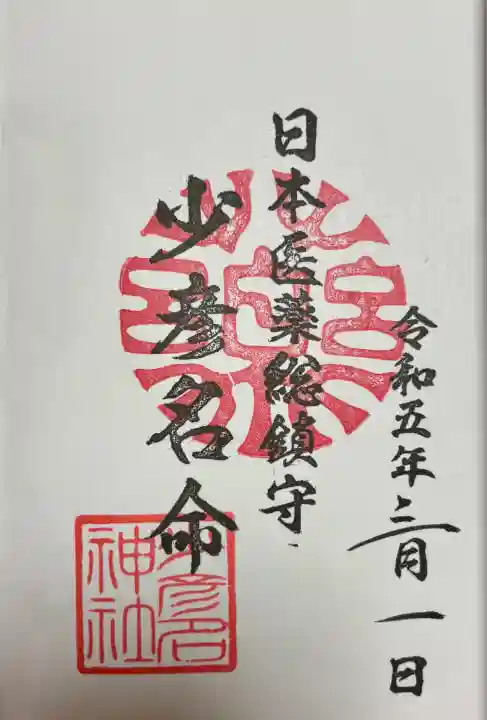 令和五年三月一日
日本医薬総鎮守
少彦名命
少彦名神社